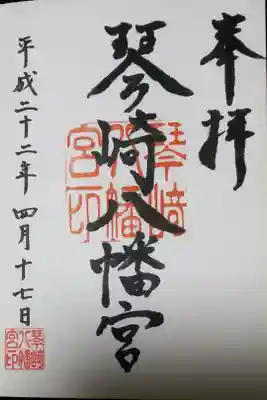 奉拝
琴崎八幡宮
平成二十二年 四月十七日
琴崎
八幡
宮印
琴崎
八幡
宮印